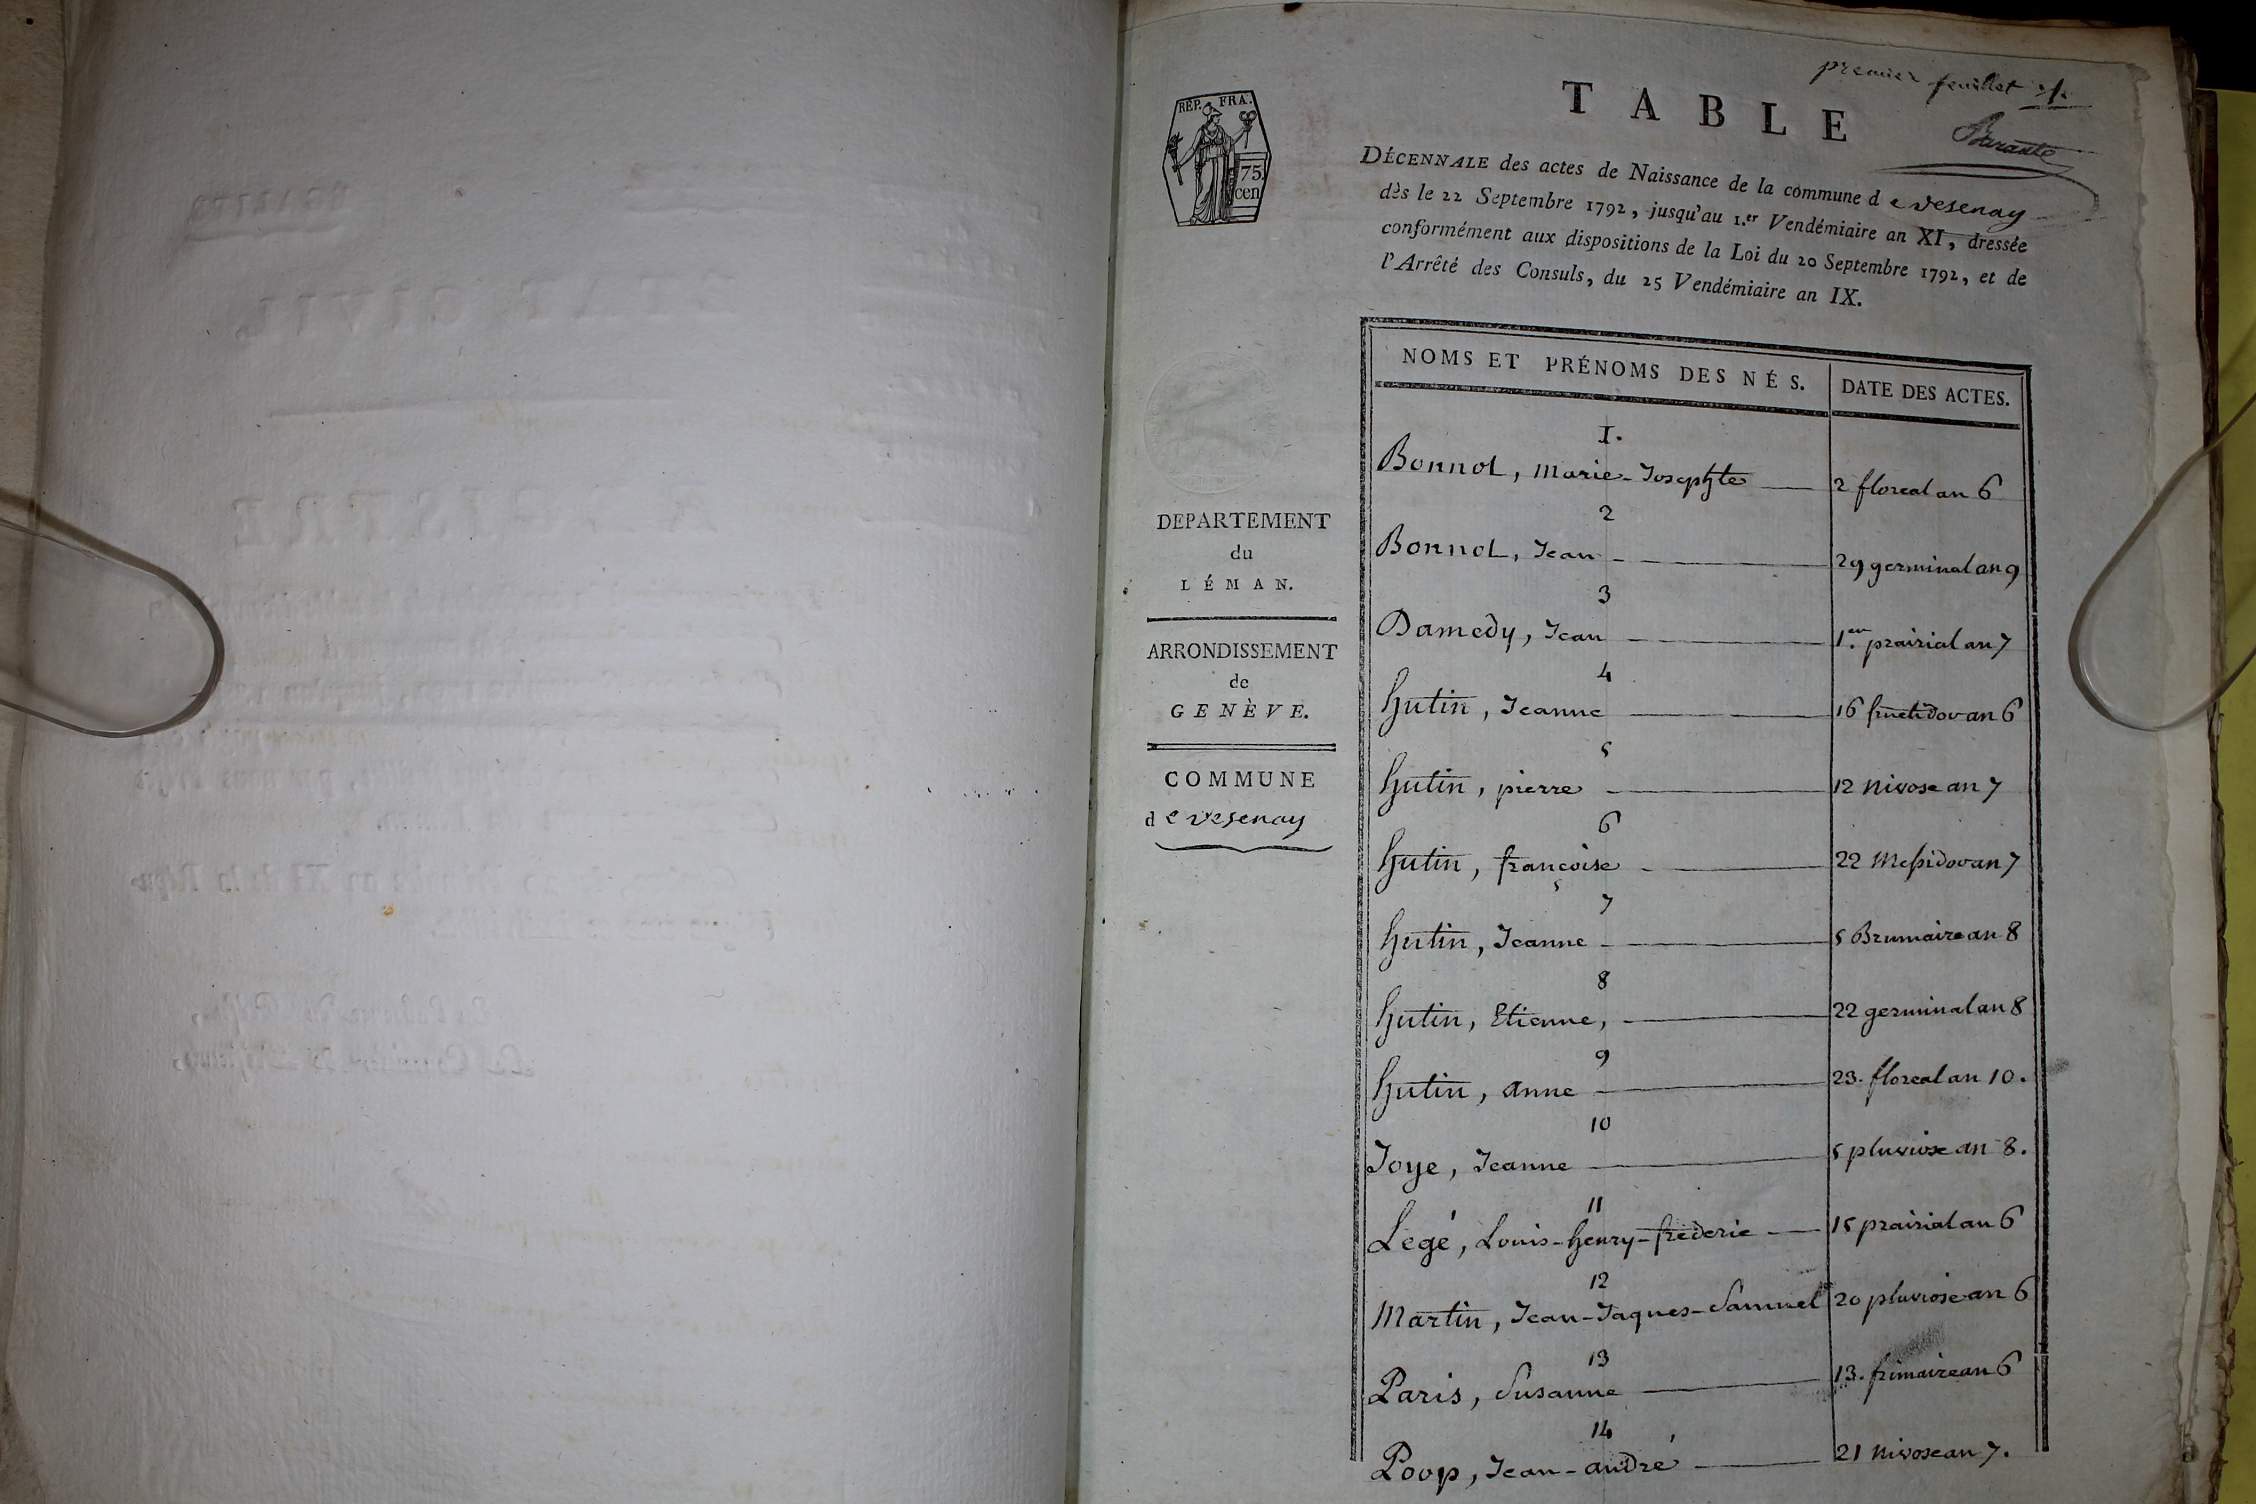 premier feuillet 1.
Barante
REP. FRA.
75.
cen
TABLE
DÉCENNALE des actes de Naissance de la commune de vesenay
dès le 22 Septembre 1792, jusqu'au 1.er Vendémiaire an XI, dressée
conformément aux dispositions de la Loi du 20 Septembre 1792, et de
l'Arrêté des Consuls, du 25 Vendémiaire an IX.
DEPARTEMENT
du
LÉMAN.
ARRONDISSEMENT
de
GENÈVE.
COMMUNE
de vesenay
NOMS ET PRÉNOMS DES NÉS. DATE DES ACTES.
1.
Bonnot, Marie-Josephte 2 floreal an 6
2
Bonnot, Jean 29 germinal an 9
3
Damedy, Jean 1.er prairial an 7
4
hutin, Jeanne 16 fructidor an 6
5
hutin, pierre 12 Nivose an 7
6
hutin, françoise 22 Messidor an 7
7
hutin, Jeanne 5 Brumaire an 8
8
hutin, Etienne, 22 germinal an 8
9
hutin, anne 23. floreal an 10.
10
Joye, Jeanne 5 pluviose an 8.
11
Legé, Louis-henry-frederic 15 prairial an 6
12
Martin, Jean-Jaques-Samuel 20 pluviose an 6
13
Paris, Susanne 13. frimaire an 6
14
Poop, Jean-andré 21 Nivose an 7.